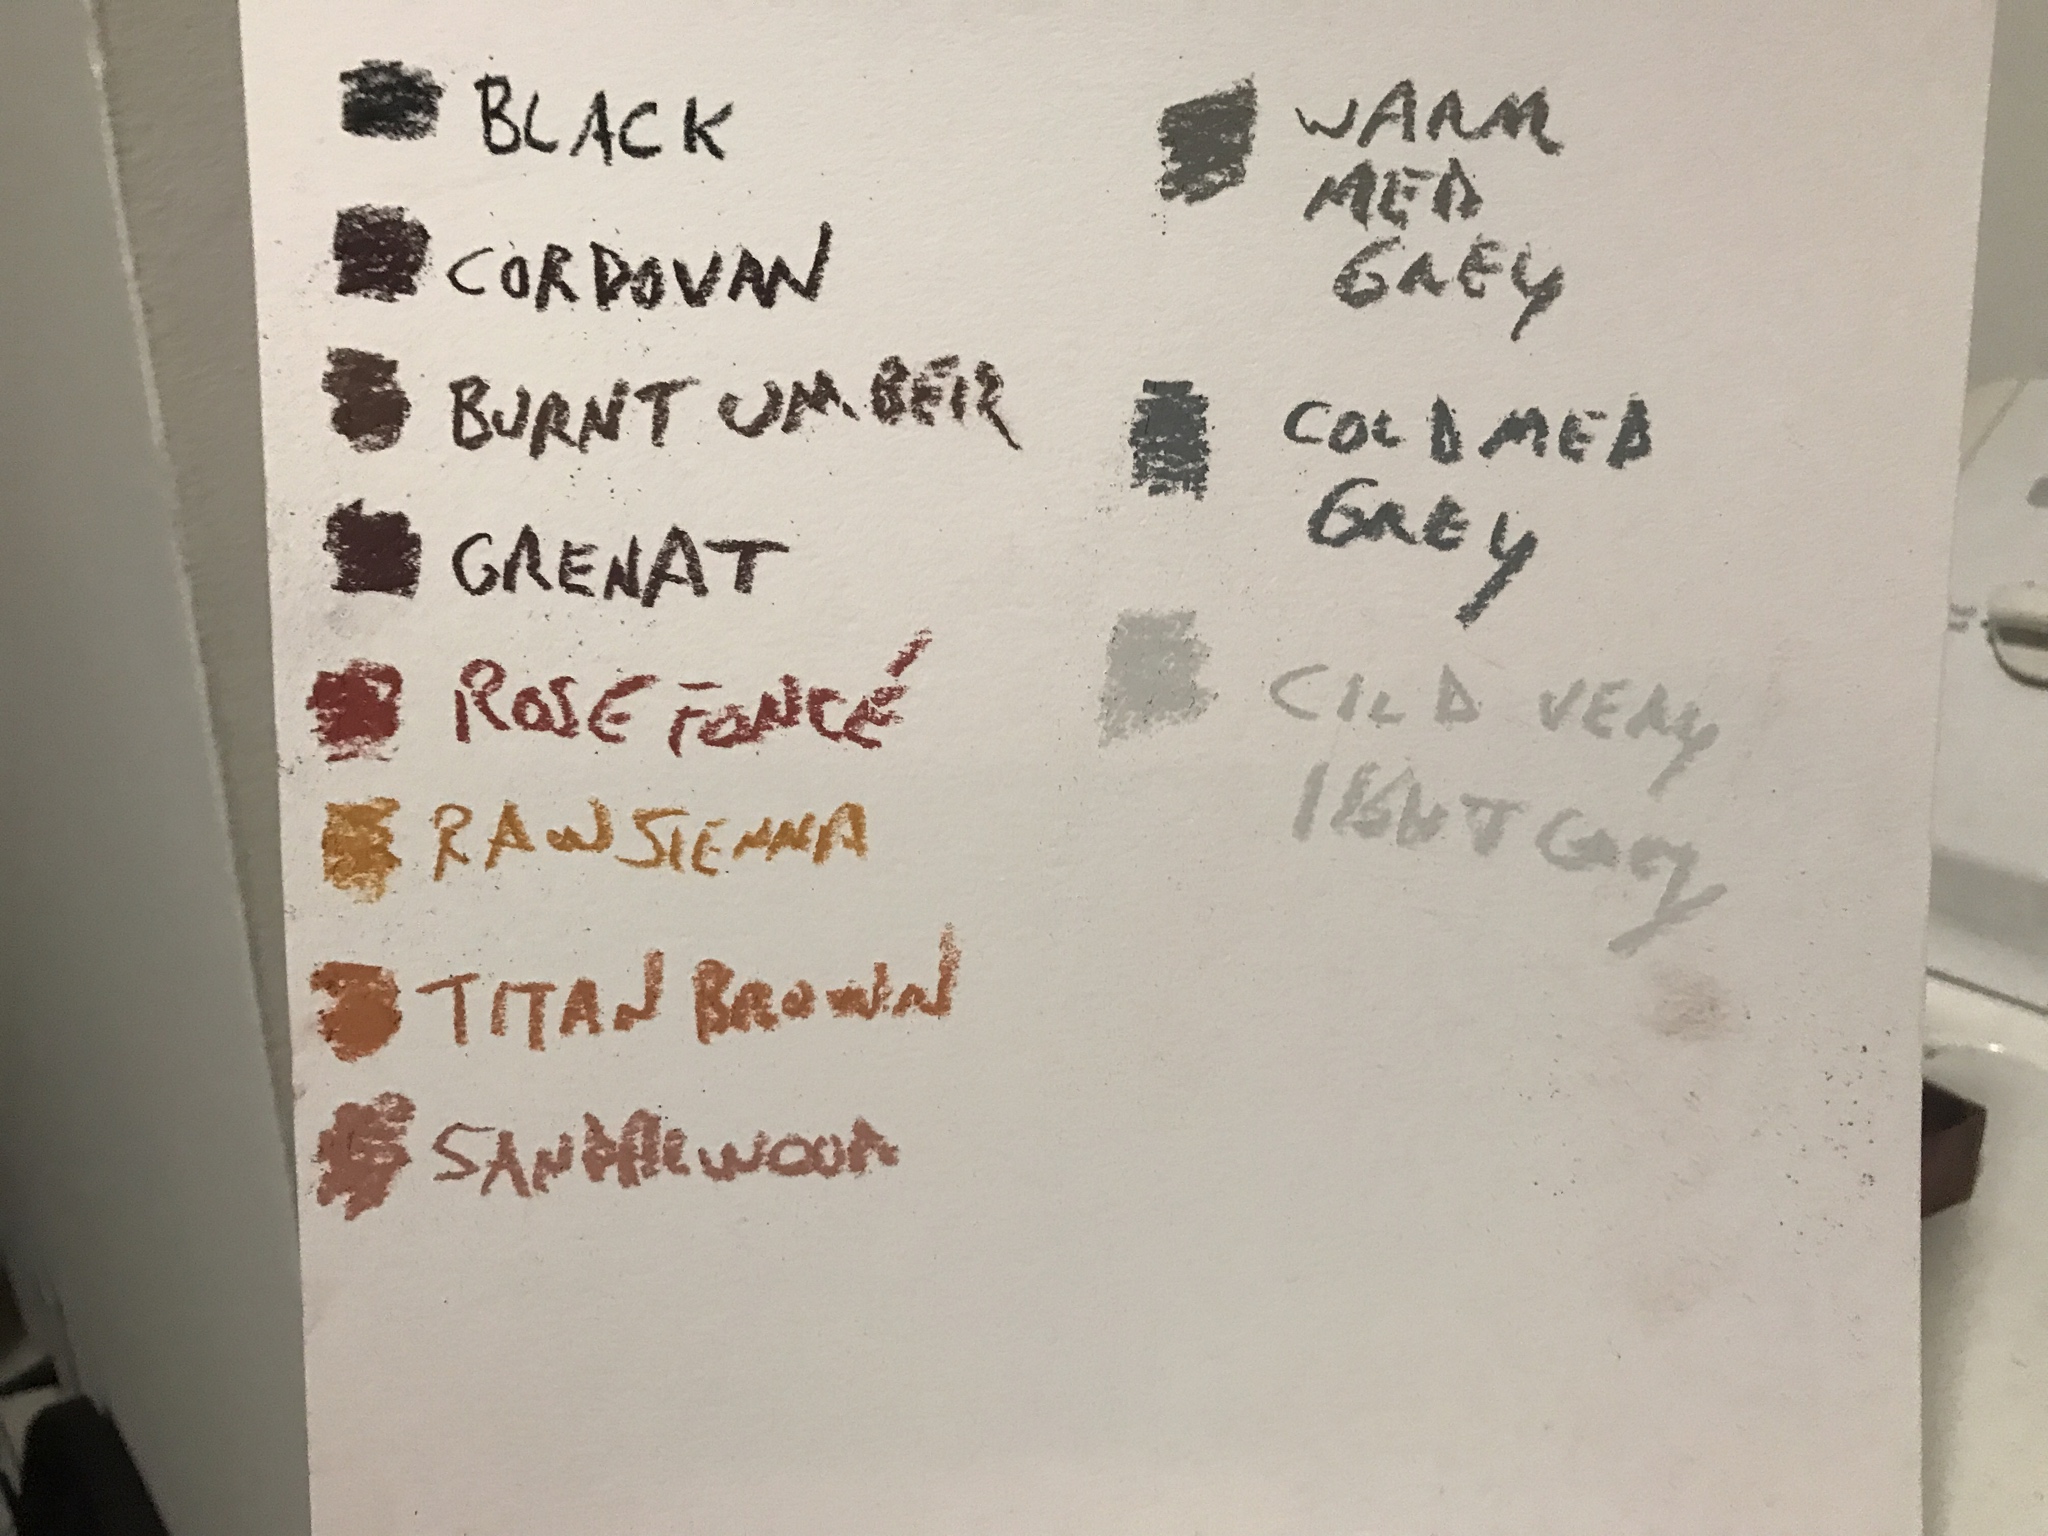 BLACK
CORDOVAN
BURNT UMBER
GRENAT
ROSE FONCÉ
RAW SIENNA
TITAN BROWN
SANDALWOOD
WARM
MED
GREY
COLD MED
GREY
COLD VERY
LIGHT GREY